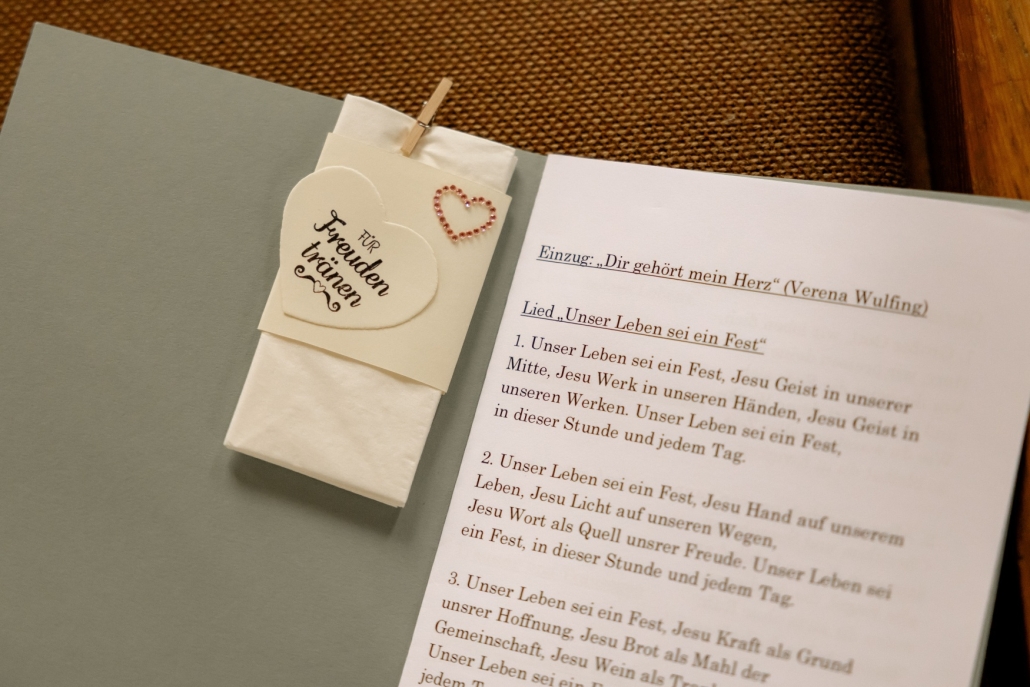 FÜR
Freuden
tränen
Einzug: „Dir gehört mein Herz“ (Verena Wulfing)
Lied „Unser Leben sei ein Fest“
1. Unser Leben sei ein Fest, Jesu Geist in unserer
Mitte, Jesu Werk in unseren Händen, Jesu Geist in
unseren Werken. Unser Leben sei ein Fest,
in dieser Stunde und jedem Tag.
2. Unser Leben sei ein Fest, Jesu Hand auf unserem
Leben, Jesu Licht auf unseren Wegen,
Jesu Wort als Quell unsrer Freude. Unser Leben sei
ein Fest, in dieser Stunde und jedem Tag.
3. Unser Leben sei ein Fest, Jesu Kraft als Grund
unsrer Hoffnung, Jesu Brot als Mahl der
Gemeinschaft, Jesu Wein als
Unser Leben sei ein
jedem